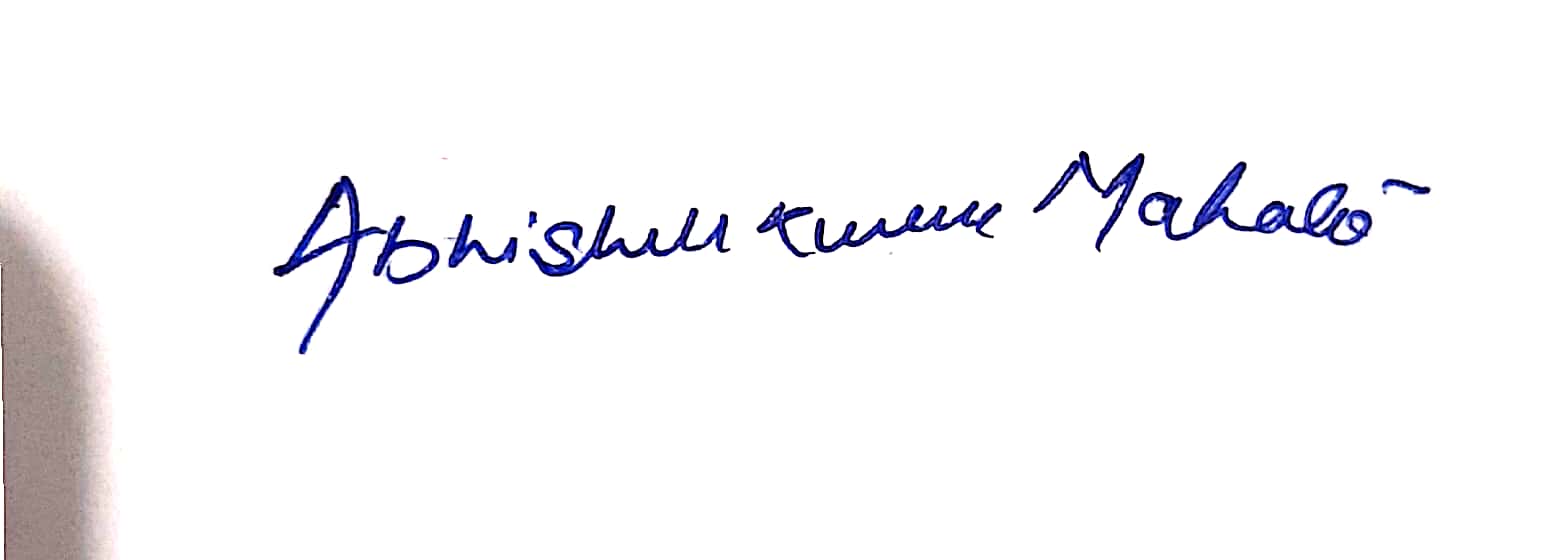 Abhishek Kumar Mahato